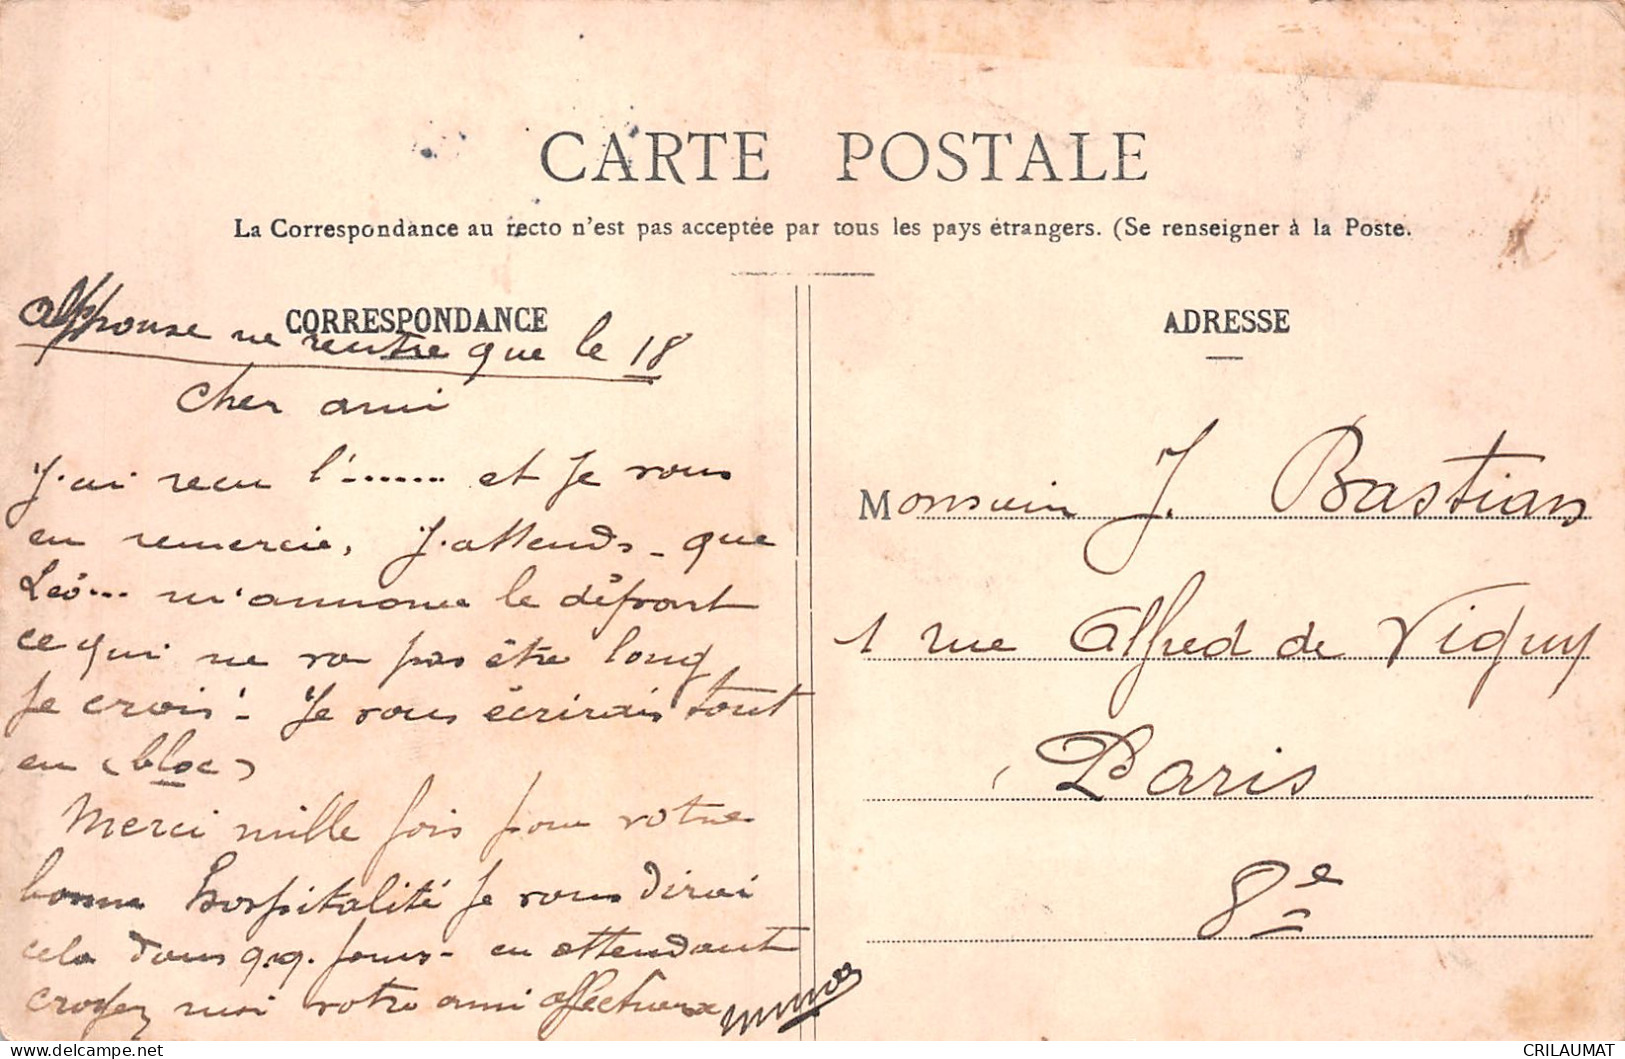 CARTE POSTALE
La Correspondance au recto n'est pas acceptée par tous les pays étrangers. (Se renseigner à la Poste.
CORRESPONDANCE
Alphonse ne rentre que le 18
Cher ami
J'ai reçu l'....... et je vous
en remercie, J'attends - que
Léo... m'annonce le départ
ce qui ne va pas être long
je crois! - Je vous écrirais tout
en (bloc)
Merci mille fois pour votre
bonne hospitalité je vous dirai
cela dans q.q. jours - en attendant
croyez moi votre ami affectueux
ADRESSE
Monsieur J. Bastian
1 rue Alfred de Vigny
Paris
8e
CRILAUMAT